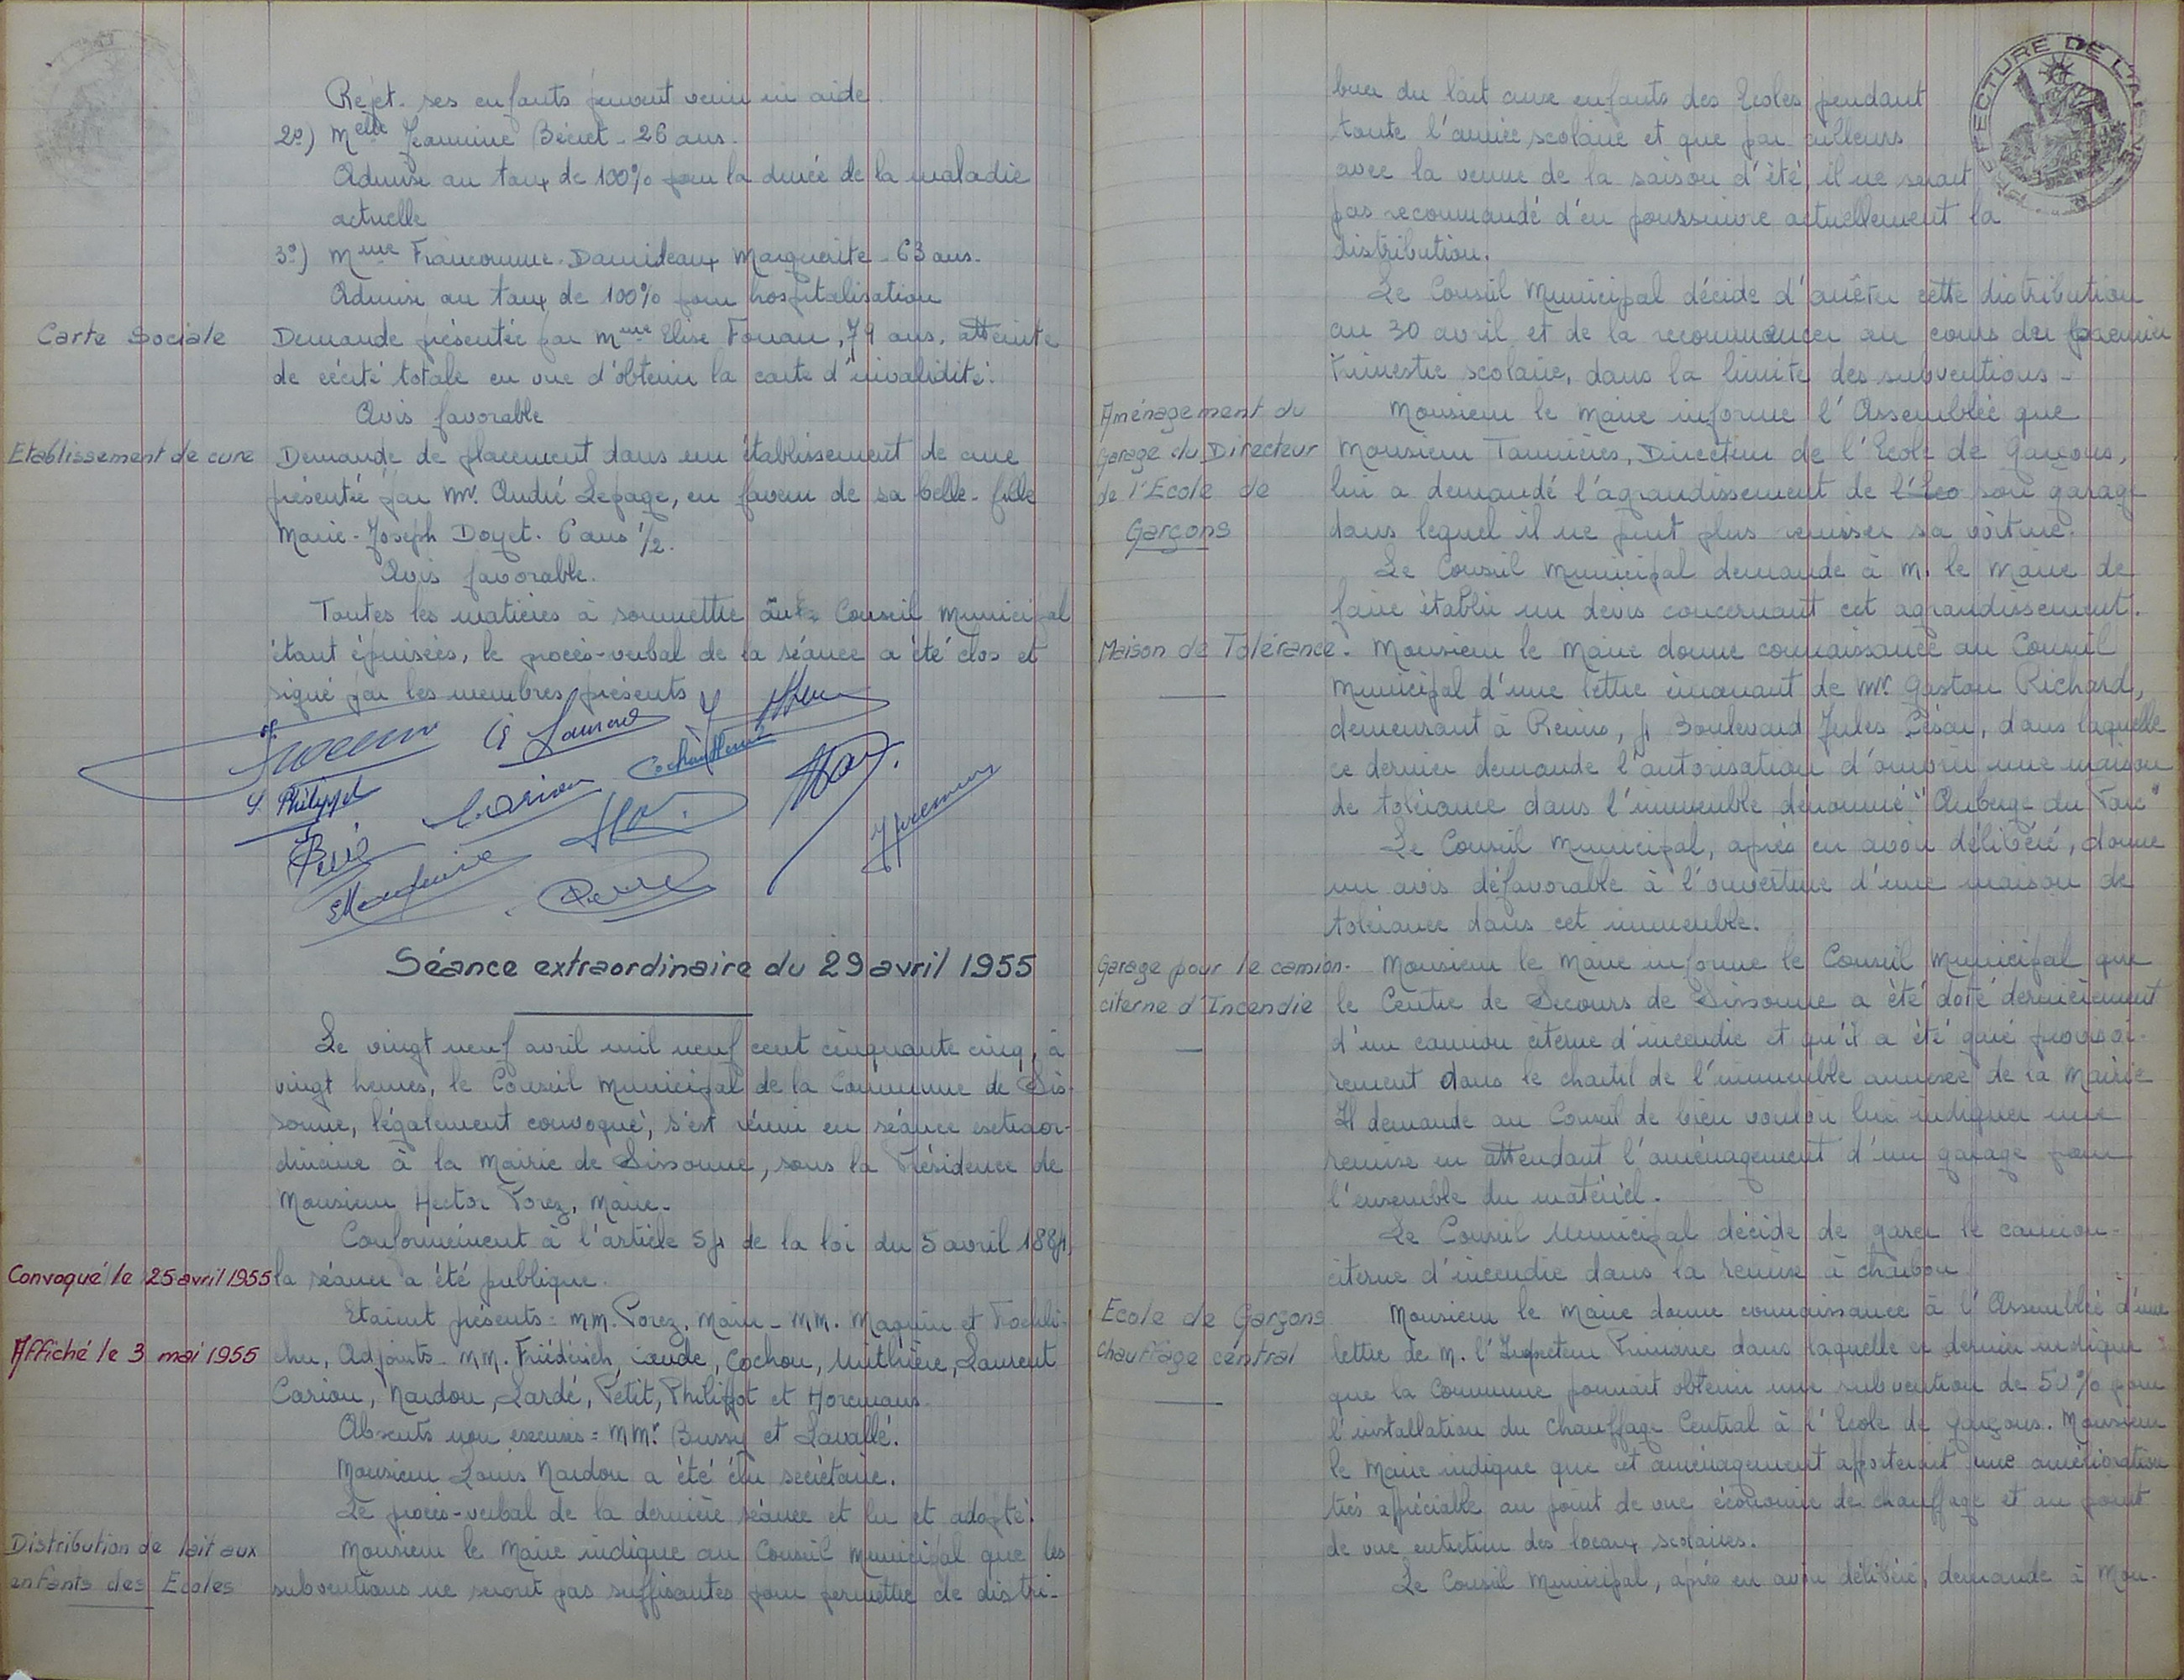 Rejet. ses enfants peuvent venir en aide
2º) Melle Jeannine Bécret - 26 ans.
Admise au taux de 100% pour la durée de la maladie
actuelle
3º) Mme Franconme-Damideaux Marguerite - 63 ans.
Admise au taux de 100% pour hospitalisation
Carte Sociale
Demande présentée par Mme Elise Fouau, 79 ans, atteinte
de cécité totale en vue d'obtenir la carte d'invalidité.
Avis favorable
Etablissement de cure
Demande de placement dans un établissement de cure
présentée par Mr. André Lepage, en faveur de sa belle-fille
Marie-Joseph Doyet. 6 ans 1/2.
Avis favorable.
Toutes les matières à soumettre au Conseil Municipal
étant épuisées, le procès-verbal de la séance a été clos et
signé par les membres présents
G Laurent
Cochon
L. Philippot
Cariou
Séance extraordinaire du 29 avril 1955
Le vingt neuf avril mil neuf cent cinquante cinq, à
vingt heures, le Conseil Municipal de la Commune de Sis-
sonne, légalement convoqué, s'est réuni en séance extraor-
dinaire à la Mairie de Sissonne, sous la Présidence de
Monsieur Hector Porez, Maire.
Conformément à l'article 54 de la loi du 5 avril 1884,
Convoqué le 25 avril 1955
la séance a été publique.
Etaient présents = MM. Porez, Maire - MM. Maquin et Froehli-
Affiché le 3 mai 1955
cher, Adjoints - MM. Friédérich, Caude, Cochon, Muthière, Laurent
Cariou, Nardou, Lardé, Petit, Philippot et Horemans.
Absents non excusés = MMr. Bussy et Lavallé.
Monsieur Louis Nardou a été élu secrétaire.
Le procès-verbal de la dernière séance et lu et adopté.
Distribution de lait aux
enfants des Ecoles
Monsieur le Maire indique au Conseil Municipal que les
subventions ne seront pas suffisantes pour permettre de distri-
buer du lait aux enfants des Ecoles pendant
toute l'année scolaire et que par ailleurs
avec la venue de la saison d'été, il ne serait
pas recommandé d'en poursuivre actuellement la
distribution.
Le Conseil Municipal décide d'arrêter cette distribution
au 30 avril et de la recommencer au cours du premier
trimestre scolaire, dans la limite des subventions -
Aménagement du
Garage du Directeur
de l'Ecole de
Garçons
Monsieur le Maire informe l'Assemblée que
Monsieur Tannières, Directeur de l'Ecole de Garçons,
lui a demandé l'agrandissement de l'Eco son garage
dans lequel il ne peut plus remiser sa voiture.
Le Conseil Municipal demande à M. le Maire de
faire établir un devis concernant cet agrandissement.
Maison de Tolérance.
Monsieur le Maire donne connaissance au Conseil
Municipal d'une lettre émanant de Mr. Gaston Richard,
demeurant à Reims, 4 Boulevard Jules César, dans laquelle
ce dernier demande l'autorisation d'ouvrir une maison
de tolérance dans l'immeuble dénommé "Auberge du Parc"
Le Conseil Municipal, après en avoir délibéré, donne
un avis défavorable à l'ouverture d'une maison de
tolérance dans cet immeuble.
Garage pour le camion-
citerne d'Incendie
Monsieur le Maire informe le Conseil Municipal que
le Centre de Secours de Sissonne a été doté dernièrement
d'un camion citerne d'incendie et qu'il a été garé provisoi-
rement dans le chartil de l'immeuble annexe de la Mairie
Il demande au Conseil de bien vouloir lui indiquer une
remise en attendant l'aménagement d'un garage pour
l'ensemble du matériel.
Le Conseil Municipal décide de garer le camion-
citerne d'incendie dans la remise à charbon.
Ecole de Garçons
Chauffage central
Monsieur le Maire donne connaissance à l'Assemblée d'une
lettre de M. l'Inspecteur Primaire dans laquelle ce dernier indique
que la Commune pourrait obtenir une subvention de 50% pour
l'installation du Chauffage Central à l'Ecole de Garçons. Monsieur
le Maire indique que cet aménagement apporterait une amélioration
très appréciable au point de vue économie de chauffage et au point
de vue entretien des locaux scolaires.
Le Conseil Municipal, après en avoir délibéré, demande à Mon-